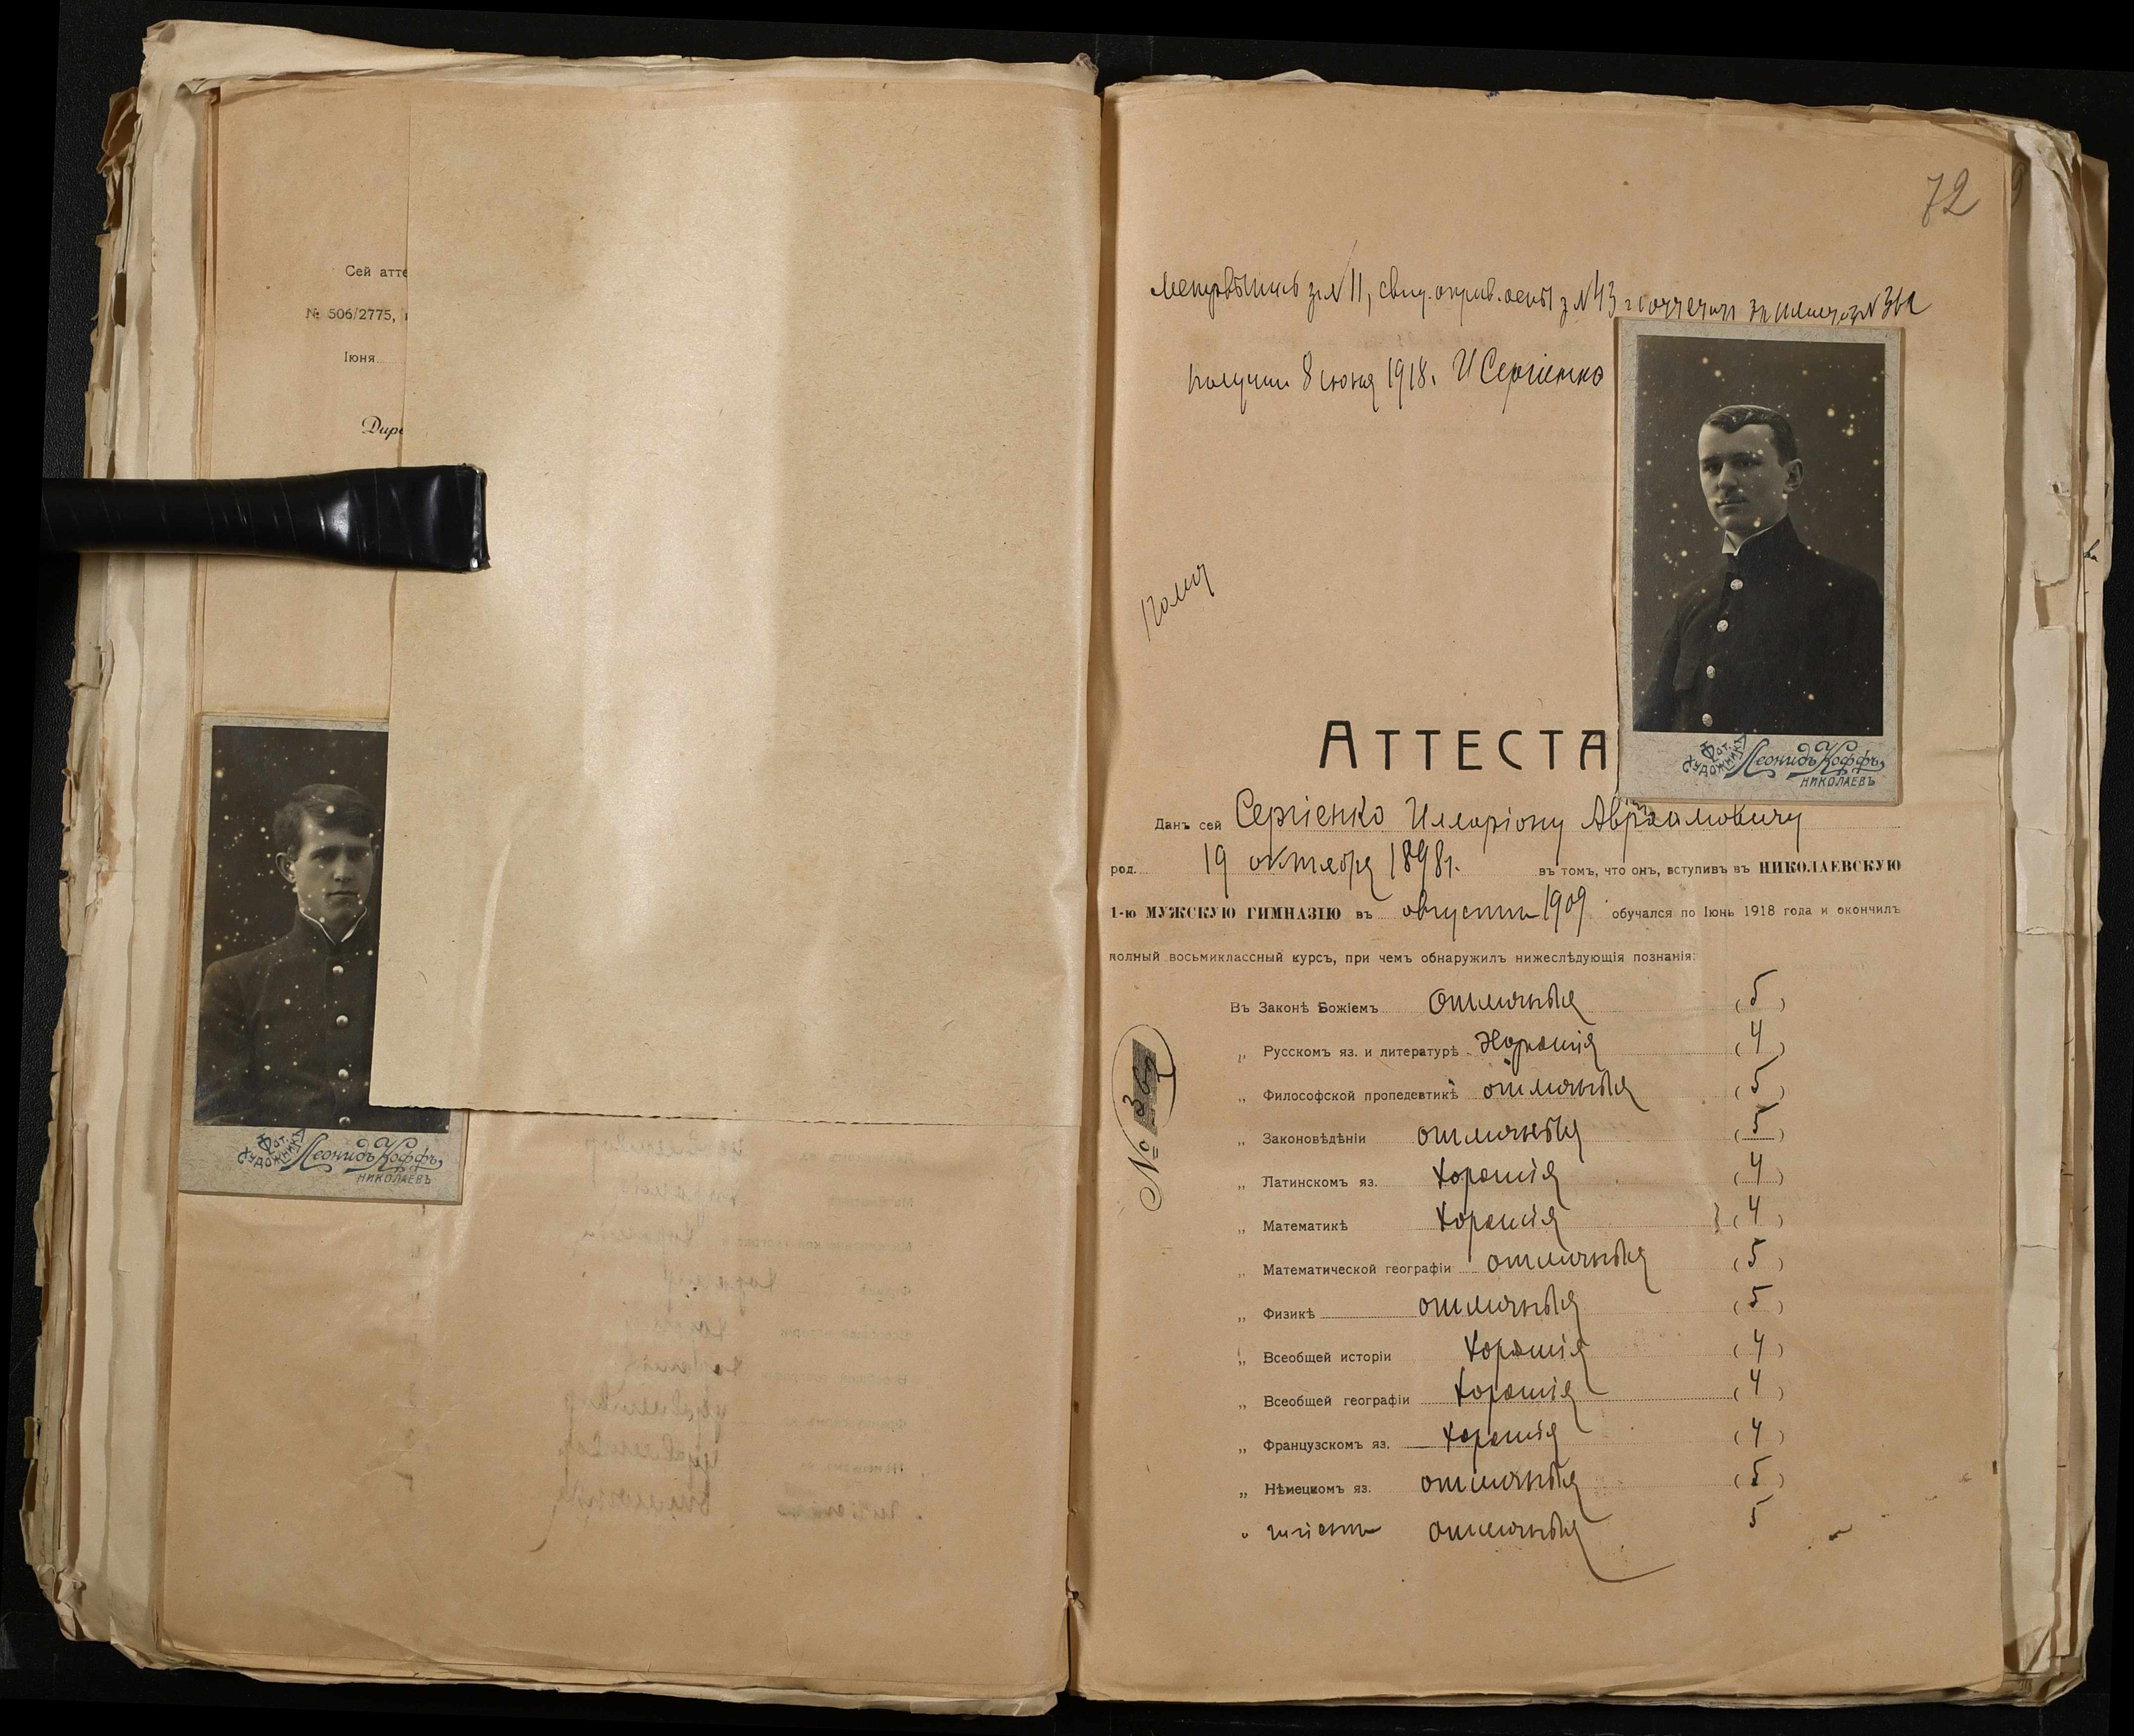 Сей атте
№ 506/2775,
Іюня
Дире
Фот. Художникъ Леонидъ Коффъ,
НИКОЛАЕВЪ
72
№ 11, № 43
получил 8 июня 1918. И Сергіенко
АТТЕСТА
Фот. Художникъ Леонидъ Коффъ,
НИКОЛАЕВЪ
Данъ сей Сергіенко Илларіону Авраамовичу
род. 19 октября 1898 г. въ томъ, что онъ, вступивъ въ НИКОЛАЕВСКУЮ
1-ю МУЖСКУЮ ГИМНАЗІЮ въ августе 1909 обучался по Іюнь 1918 года и окончилъ
полный восьмиклассный курсъ, при чемъ обнаружилъ нижеслѣдующія познанія:
Въ Законѣ Божіемъ отличныя (5)
„ Русскомъ яз. и литературѣ Хорошія (4)
„ Философской пропедевтикѣ отличныя (5)
„ Законовѣдѣніи отличныя (5)
„ Латинскомъ яз. хорошія (4)
„ Математикѣ хорошія (4)
„ Математической географіи отличныя (5)
„ Физикѣ отличныя (5)
„ Всеобщей исторіи хорошія (4)
„ Всеобщей географіи хорошія (4)
„ Французскомъ яз. хорошія (4)
„ Нѣмецкомъ яз. отличныя (5)
„ гигіенѣ отличныя 5
№